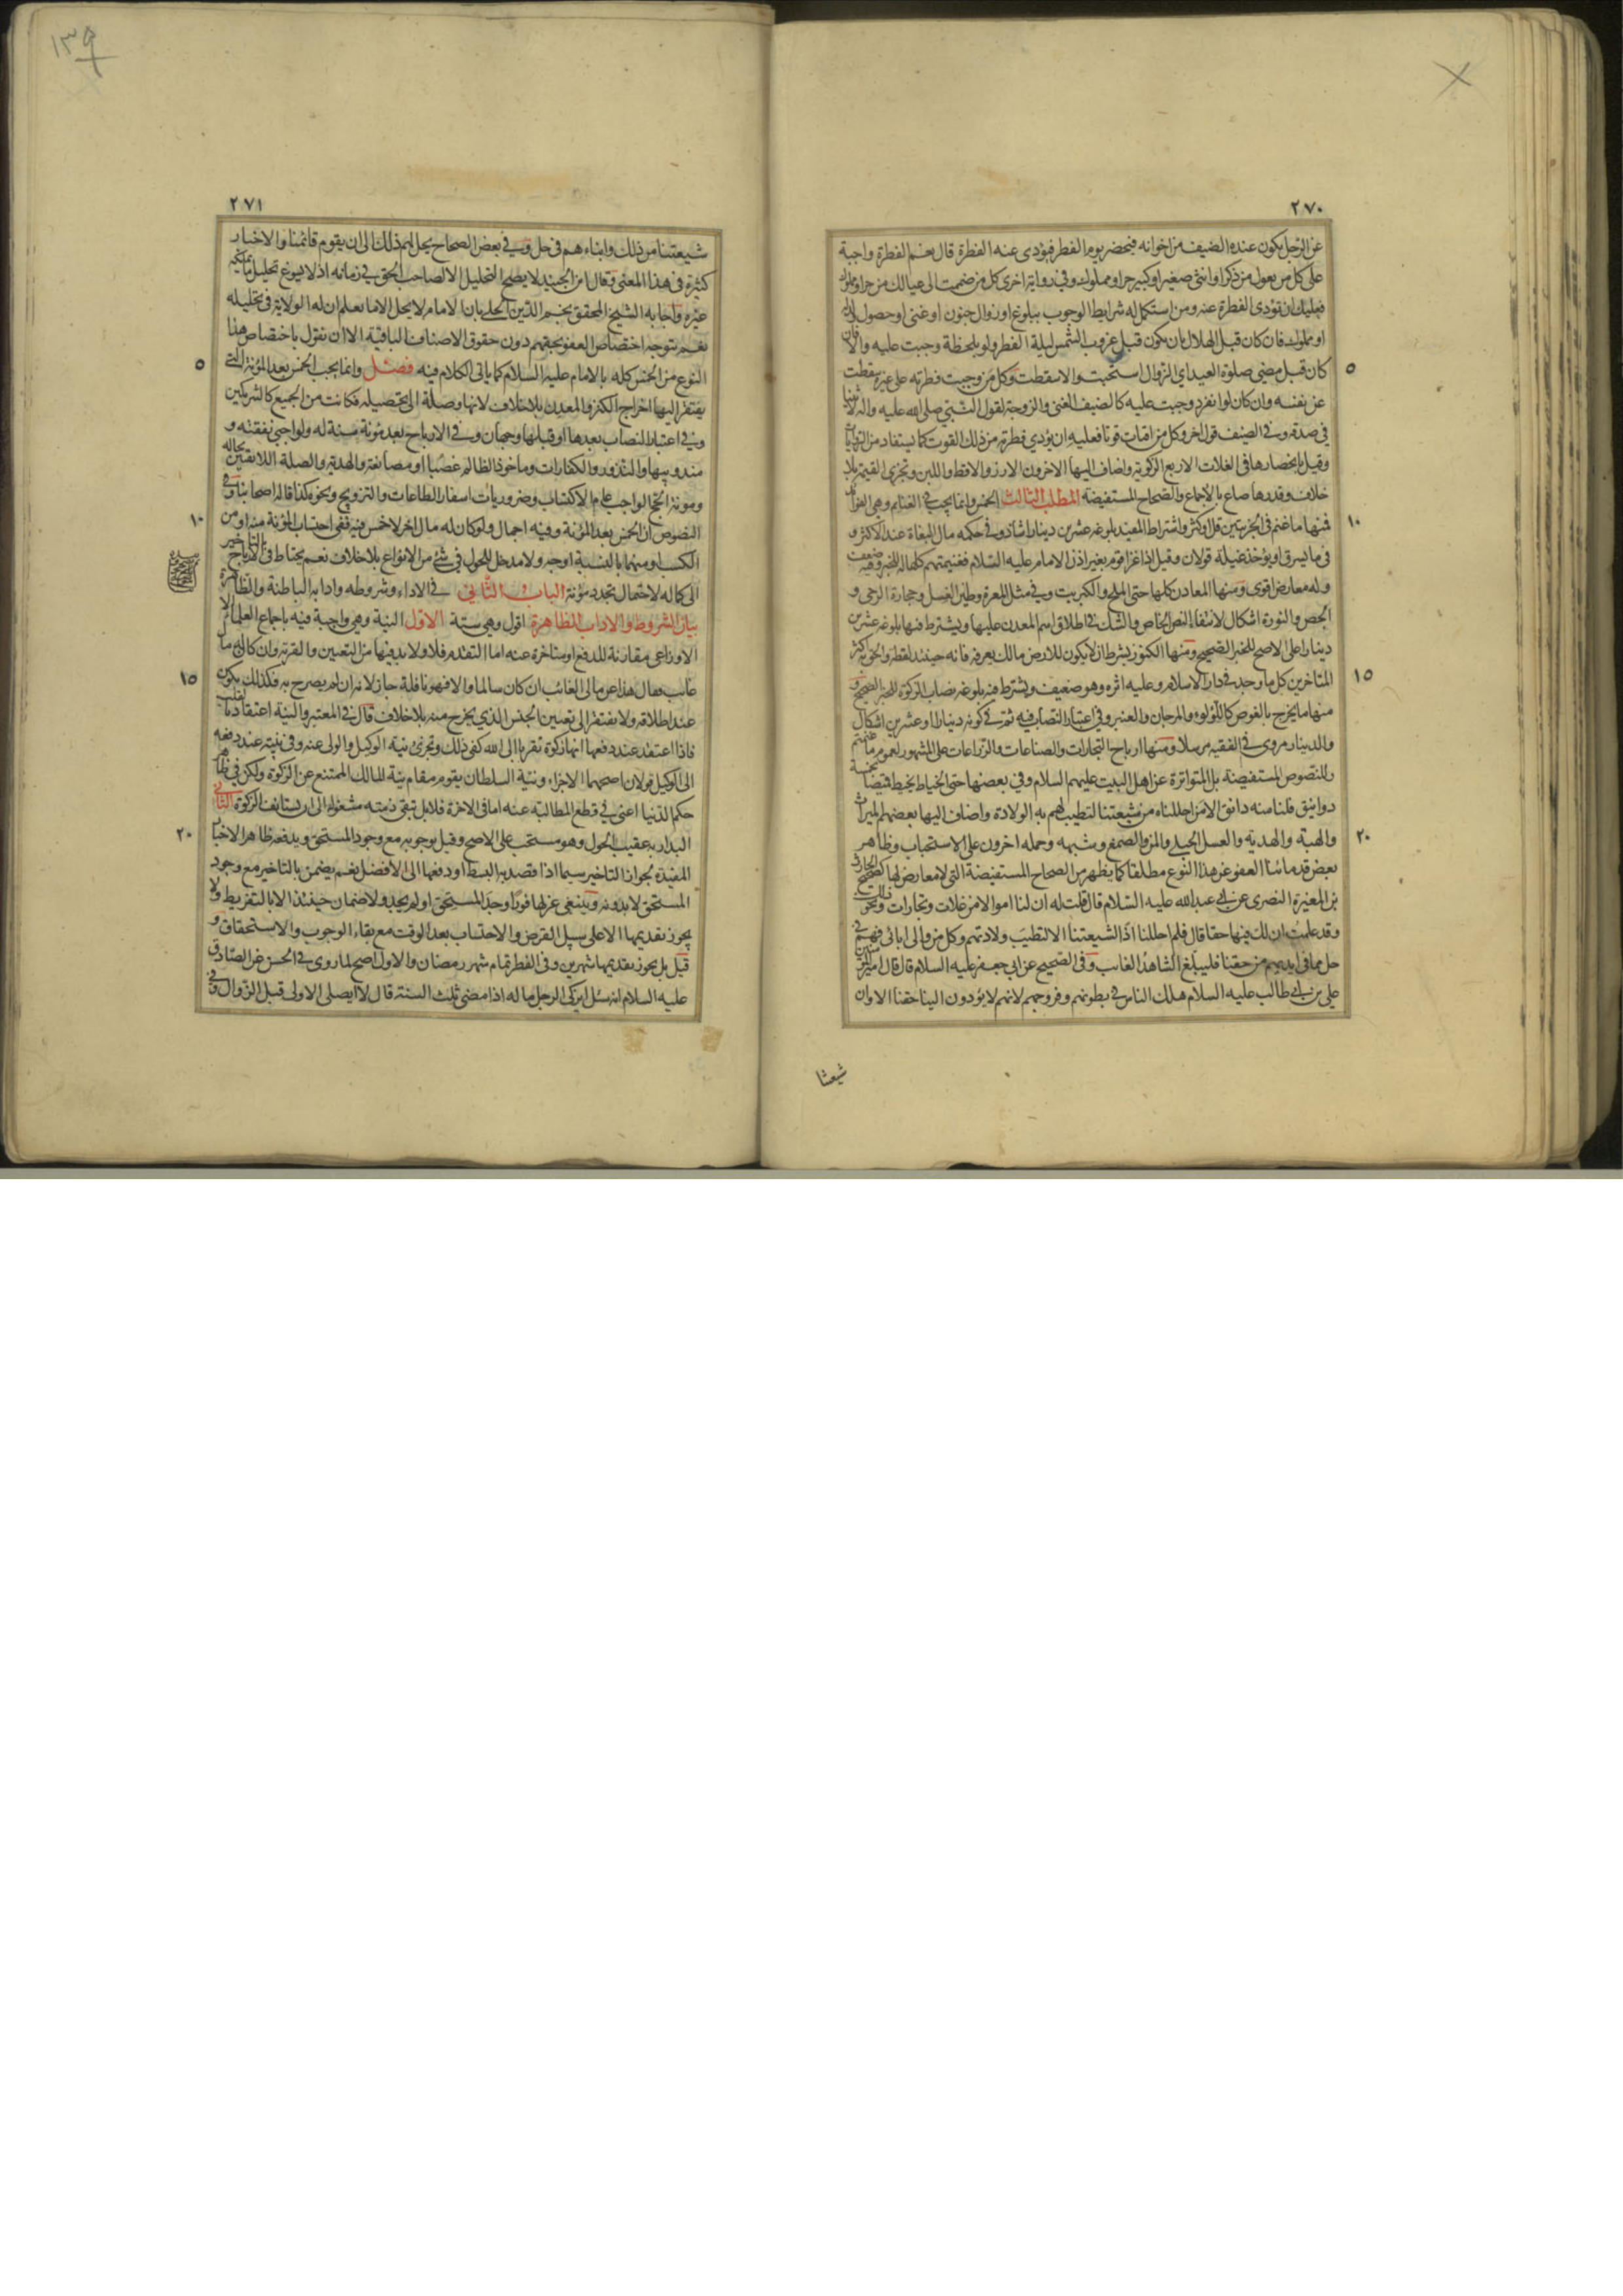 ٢٧٠
عن الرجل يكون عنده الضيف من اخوانه فيحضر يوم الفطر فيؤدى عنه الفطرة قال نعم الفطرة واجبة
على كل من يعول من ذكر او انثى صغير او كبير حر او مملوك وفي رواية اخرى كل من ضممت الى عيالك من حر او مملوك
فعليك ان تؤدى الفطرة عنه ومن استكمل له شرايط الوجوب ببلوغ او زوال جنون او غنى او حصول ولد
او مملوك فان كان قبل الهلال بان يكون قبل غروب الشمس ليلة الفطر ولو بلحظة وجبت عليه والا فان
كان قبل مضى صلوة العيد اي الزوال استحبت والا سقطت وكل من وجبت فطرته على غيره سقطت
عن نفسه وان كان لو انفرد وجبت عليه كالضيف الغنى والزوجة لقول النبي صلى الله عليه واله لا ثنيا
في صدقة وفي الضيف قول اخر وكل من اقتات قوتا فعليه ان يؤدي فطرته من ذلك القوت كما يستفاد من الروايات
وقيل بانحصارها في الغلات الاربع الزكوية واضاف اليها الاخرون الارز والاقط واللبن وتجزى القيمة بلا
خلاف وقدرها صاع بالاجماع والصحاح المستفيضة المطلب الثالث الخمس وانما يجب في الغنايم وهي الفوائد
فمنها ما غنم في الحرب بين قل او كثر واشتراط المفيد بلوغه عشرين دينارا شاذ وفي حكمه مال البغاة عند الاكثر و
في ما يسرق او يؤخذ غيلة قولان وقيل اذا غزا قوم بغير اذن الامام عليه السلام فغنيمتهم كلها له للخبر وفيه ضعف
وله معارض اقوى ومنها المعادن كلها حتى الملح والكبريت وفي مثل المغرة وطين الغسل وحجارة الرحى و
الجص والنورة اشكال لانتفاء النص الخاص والشك في اطلاق اسم المعدن عليها ويشترط فيها بلوغه عشرين
دينارا على الاصح للخبر الصحيح ومنها الكنوز بشرط ان لا يكون للارض مالك يعرفه فانه حينئذ لقطة والحق به اكثر
المتاخرين كل ما وجد في دار الاسلام وعليه اثره وهو ضعيف ويشترط فيه بلوغه نصاب الزكوة للخبر الصحيح و
منها ما يخرج بالغوص كاللؤلؤ والمرجان والعنبر وفي اعتبار النصاب فيه ثم في كونه دينارا او عشرين اشكال
والدينار مروى في الفقيه مرسلا ومنها ارباح التجارات والصناعات والزراعات على المشهور لعموم ما غنمتم
وللنصوص المستفيضة بل المتواترة عن اهل البيت عليهم السلام وفي بعضها حتى الخياط يخيط قميصا بخمسة
دوانيق فلنا منه دانق الا من احللناه من شيعتنا لتطيب لهم به الولادة واضاف اليها بعضهم الميراث
والهبة والهدية والعسل الجبلى والمن والصمغ وشبهه وحمله اخرون على الاستحباب وظاهر
بعض قدمائنا العفو عن هذا النوع مطلقا كما يظهر من الصحاح المستفيضة التي لا معارض لها كصحيح الحارث
بن المغيرة النصرى عن ابي عبد الله عليه السلام قال قلت له ان لنا اموالا من غلات وتجارات ونحو ذلك
وقد علمت ان لك فيها حقا قال فلم احللنا اذا لشيعتنا الا لتطيب ولادتهم وكل من والى ابائى فهم في
حل مما في ايديهم من حقنا فليبلغ الشاهد الغائب وفي الصحيح عن ابي جعفر عليه السلام قال قال امير المؤمنين
على بن ابي طالب عليه السلام هلك الناس في بطونهم وفروجهم لانهم لا يؤدون الينا حقنا الا وان
شيعتنا
٥
١٠
١٥
٢٠
١٣٩
٢٧١
شيعتنا من ذلك وابناءهم في حل وفي بعض الصحاح يحل لهم ذلك الى ان يقوم قائمنا والاخبار
كثيرة في هذا المعنى وقال ابن الجنيد لا يصح التحليل الا لصاحب الحق في زمانه اذ لا يسوغ تحليل ما يملكه
غيره واجابه الشيخ المحقق نجم الدين الحلى بان الامام لا يحل الا ما يعلم ان له الولاية في تحليله
نعم يتوجه اختصاص العفو بحقهم دون حقوق الاصناف الباقية الا ان نقول باختصاص هذا
النوع من الخمس كله بالامام عليه السلام كما ياتى الكلام فيه فصل وانما يجب الخمس بعد المؤنة التي
يفتقر اليها اخراج الكنز والمعدن بلا خلاف لانها وصلة الى تحصيله فكانت من الجميع كالشريكين
وفي اعتبار النصاب بعدها او قبلها وجهان وفي الارباح بعد مؤنة سنة له ولواجبي نفقته و
مندوبيها والنذور والكفارات وماخوذ الظالم غصبا او مصانعة والهدية والصلة اللائقتين بحاله
ومؤنة الحج الواجب عام الاكتساب وضروريات اسفار الطاعات والتزويج ونحو ذلك قاله اصحابنا وفي
النصوص ان الخمس بعد المؤنة وفيه اجمال ولو كان له مال اخر لا خمس فيه ففي احتساب المؤنة منه او من
الكسب او منهما بالنسبة اوجه ولا مدخل للحول في شئ من الانواع بلا خلاف نعم يحتاط في الارباح بالتاخير
الى كماله لاحتمال تجدد مؤنة الباب الثاني في الاداء وشروطه وادابه الباطنة والظاهرة
بيان الشروط والاداب الظاهرة اقول وهي ستة الاول النية وهي واجبة فيه باجماع العلماء الا
الاوزاعى مقارنة للدفع او متاخرة عنه اما التقدم فلا ولا بد فيها من التعيين والقربة وان كان له مال
غائب فقال هذا عن مالى الغائب ان كان سالما والا فهو نافلة جاز لانه ان لم يصرح به فكذلك يكون
عند اطلاقه ولا يفتقر الى تعيين الجنس الذي يخرج منه بلا خلاف قال في المعتبر والنية اعتقاد بالقلب
فاذا اعتقد عند دفعها انها زكوة تقربا الى الله كفى ذلك وتجزى نية الوكيل والولى عنه وفي نيته عند دفعه
الى الوكيل قولان اصحهما الاجزاء ونية السلطان يقوم مقام نية المالك الممتنع عن الزكوة ولكن في ظاهر
حكم الدنيا اعنى في قطع المطالبة عنه اما في الاخرة فلا بل تبقى ذمته مشغولة الى ان يستانف الزكوة الثاني
البدار به عقيب الحول وهو مستحب على الاصح وقيل بوجوبه مع وجود المستحق ويدفعه ظاهر الاخبار
المفيدة لجواز التاخير سيما اذا قصد به البسط او دفعها الى الافضل نعم يضمن بالتاخير مع وجود
المستحق لا بدونه وينبغى عزلها فورا وجد المستحق او لم يجد ولا ضمان حينئذ الا بالتفريط ولا
يجوز تقديمها الا على سبيل القرض والاحتساب بعد الوقت مع بقاء الوجوب والاستحقاق و
قيل بل يجوز تقديمها شهرين وفي الفطرة تمام شهر رمضان والاول اصح لما روى في الحسن عن الصادق
عليه السلام انه سئل ايزكى الرجل ماله اذا مضى ثلث السنة قال لا ايصلى الاولى قبل الزوال وفي
٥
١٠
١٥
٢٠